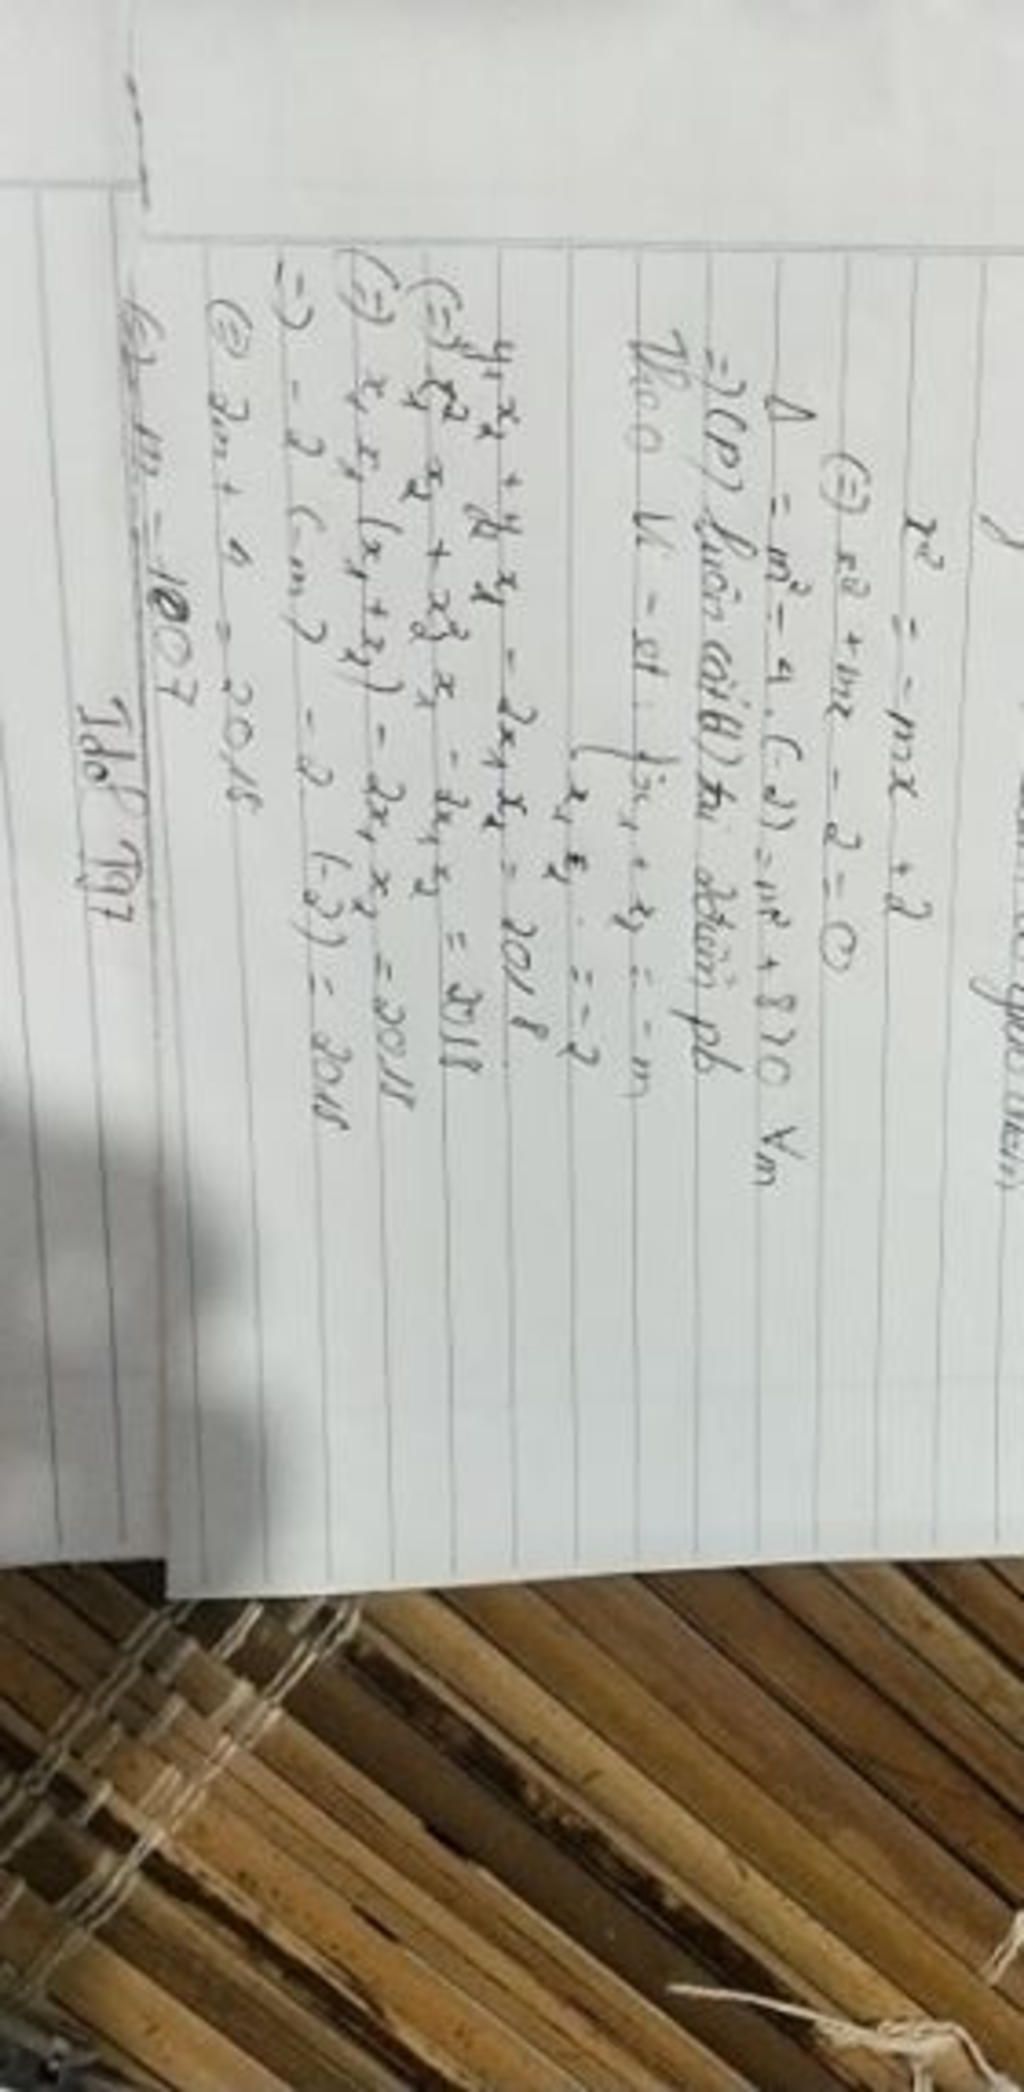 x² = -mx + 2
(=) x² + mx - 2 = 0
Δ = m² - 4.(-2) = m² + 8 > 0 ∀m
=> (P) luôn cắt (d) tại 2 điểm pb
Theo Vi-et: { x₁ + x₂ = -m
{ x₁ x₂ = -2
y₁ x₂ + y₂ x₁ - 2x₁ x₂ = 2018
(=) x₁² x₂ + x₂² x₁ - 2x₁ x₂ = 2018
(=) x₁ x₂ (x₁ + x₂) - 2x₁ x₂ = 2018
=) -2 (-m) - 2 (-2) = 2018
(=) 2m + 4 = 2018
(=) m = 1007